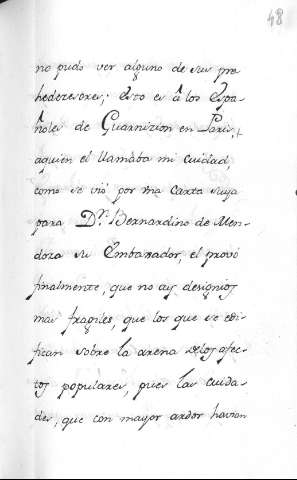 48
no pudo ver alguno de sus pre
hedezesores; esto es â los Espa-
ñoles de Guarnizion en Paris,
aquien el llamaba mi Cuidad,
como se vió por vna Carta suya
para Dn. Bernardino de Men-
doza su Embaxador, el provó
finalmente, que no ay designios
mas fragiles, que los que se edi-
fican sobre la arena delos afec-
tos populares, pues las cuida-
des, que con mayor ardor havian